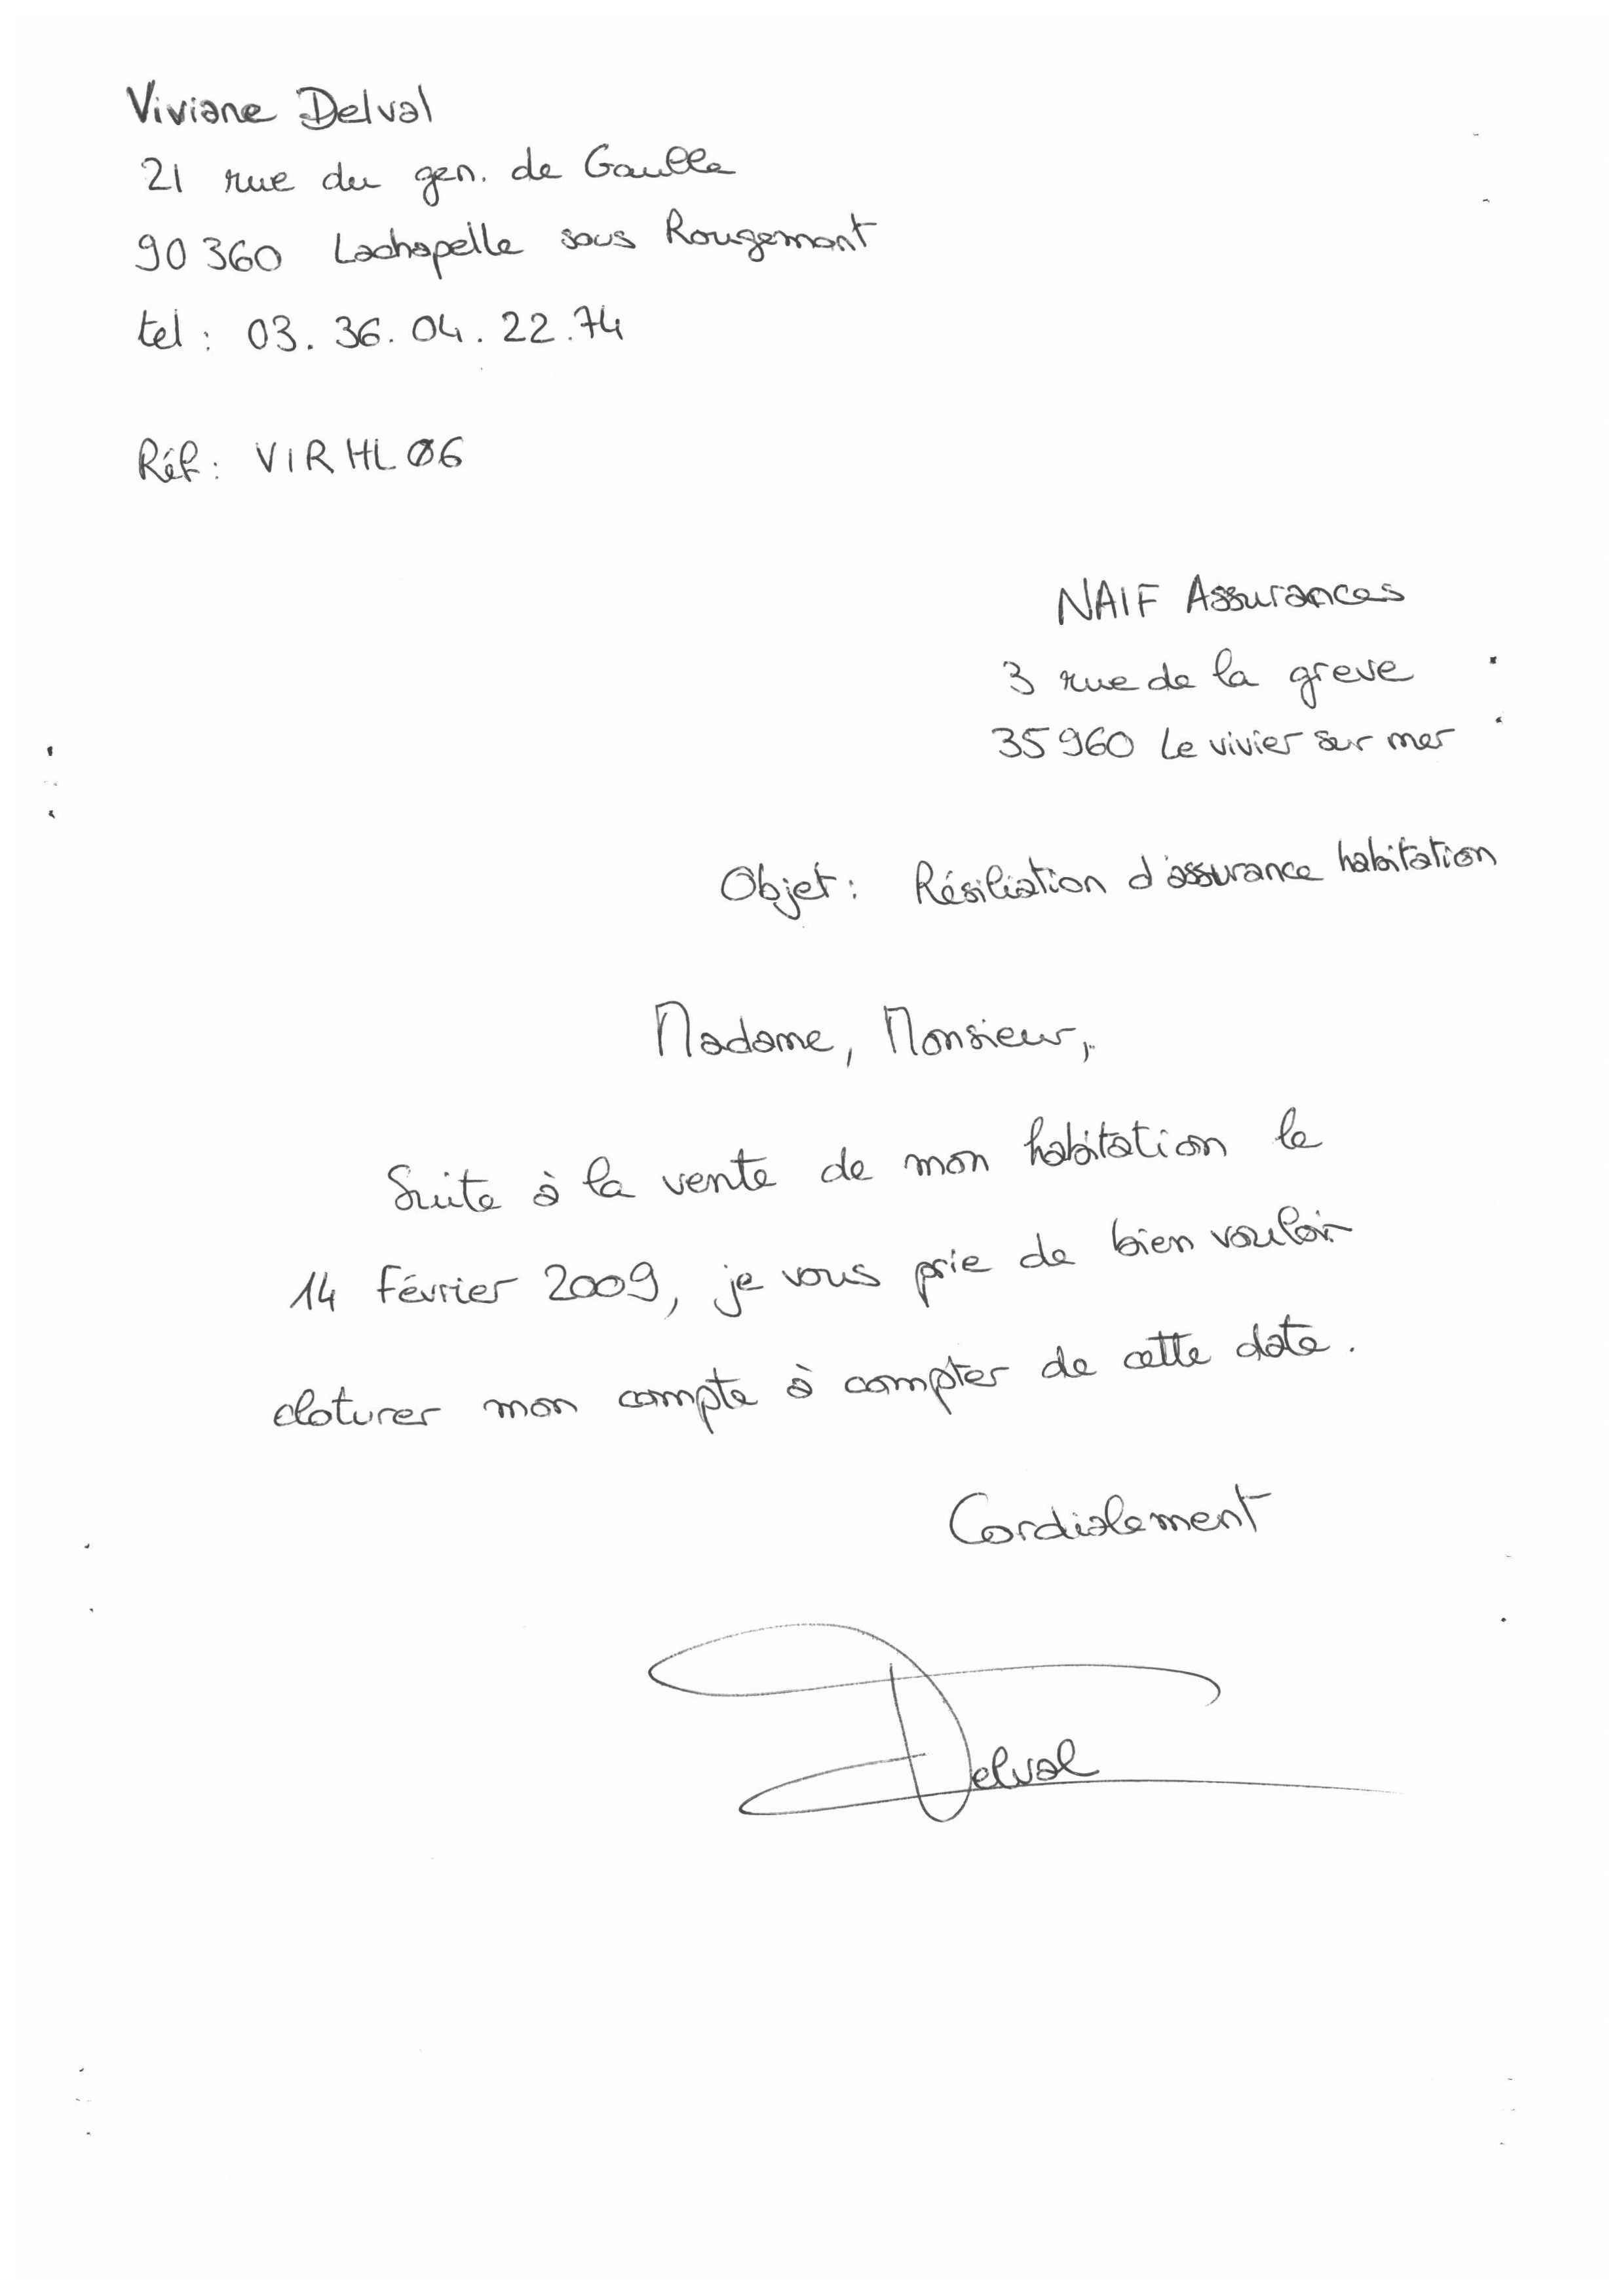 Viviane Delval
21 rue du gen. de Gaulle
90 360 Lachapelle sous Rougemont
tel : 03. 36. 04. 22. 74
Réf : VIRHL06
NAIF Assurances
3 rue de la greve
35 960 Le vivier sur mer
Objet : Résiliation d'assurance habitation
Madame, Monsieur,
Suite à la vente de mon habitation le
14 Février 2009, je vous prie de bien vouloir
cloturer mon compte à compter de cette date.
Cordialement
Delval